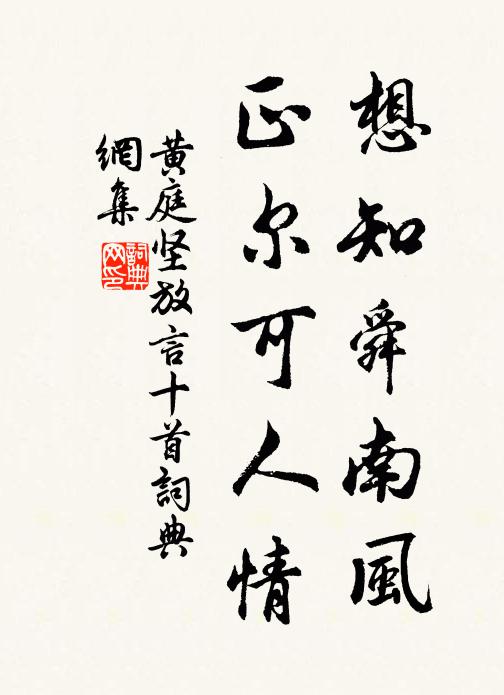 想知舜南風
正尔可人情
黄庭坚放言十首詞典
網集
詞典
网印